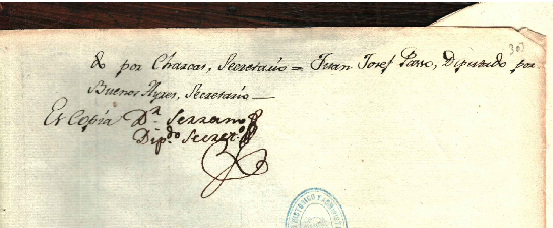 303
do por Charcas, Secretario = Juan Josef Passo, Diputado por
Buenos Ayres, Secretario —
Es Copia D.r Serrano
Dip.do Secret.o
HISTORICO Y